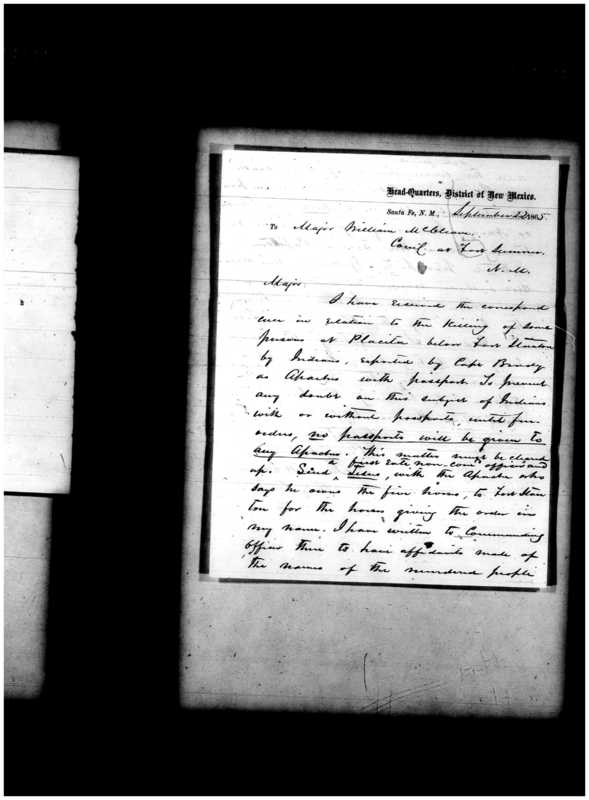 Head-Quarters, District of New Mexico.
Santa Fe, N. M., September 22 1865
To Major William McCleave
Comd'g at Fort Sumner
N. M.
Major
I have received the correspond
ence in relation to the killing of some
persons at Placita below Fort Stanton
by Indians, reported by Capt Brady
as Apaches with passport. To prevent
any doubt on this subject of Indians
with or without passports, until fur.
orders, no passports will be given to
any Apaches. This matter must be cleared
up. Send a first rate non-com' officer and
Jesus, with the Apache who
says he owns the five horses, to Fort Stan
ton for the horses giving the order in
my name. I have written to Commanding
Officer there to have affidavits made of
the names of the murdered people